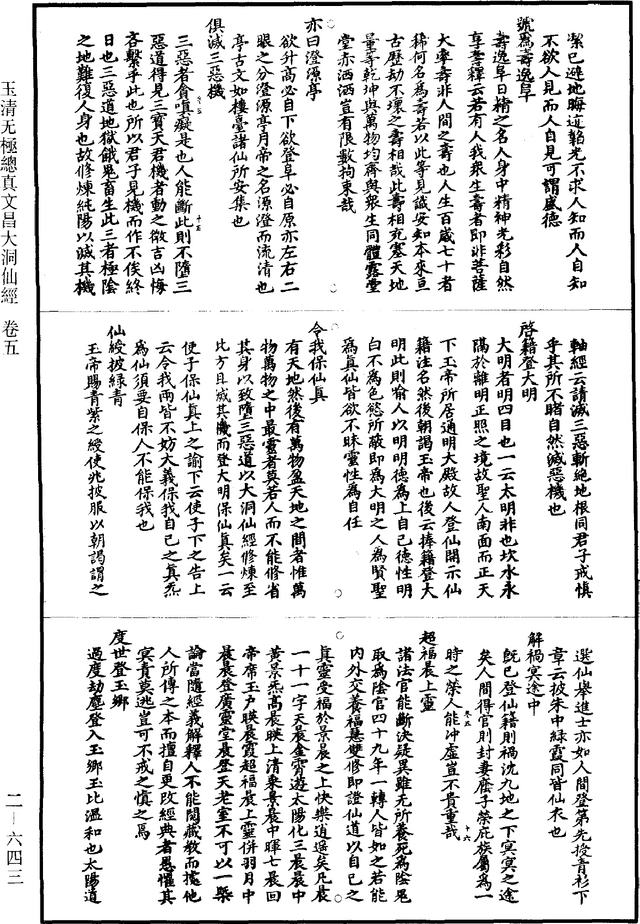 潔己避地晦迹韜光不求人知而人自知
不欲人見而人自見可謂盛德
號爲壽逸阜
壽逸阜日精之名人身中精神光彩自然
享壽釋云若有人我衆生壽者即非菩薩
大率壽非人間之壽也人生百歲七十者
稀何名爲壽若以此等見識安知本來亘
古歷劫不壞之壽相哉此壽相充塞天地
量等乾坤與萬物均齊與衆生同體露堂
堂赤洒洒豈有限數拘束哉
亦曰澄源亭
欲升高必自下欲登阜必自原亦左右二
眼之分澄源亭月帝之名源澄而流清也
亭古文如樓臺諸仙所安集也
俱滅三惡機
三惡者貪嗔癡是也人能斷此則不墮三
惡道得見三寶天君機者動之微吉凶悔
吝繫乎此也所以君子見機而作不俟終
日也三惡道地獄餓鬼畜生此三者極陰
之地難復人身也故修煉純陽以滅其機
軸經云請滅三惡斬絶地根同君子戒慎
乎其所不睹自然滅惡機也
啓籍登大明
大明者明四目也一云太明非也坎水永
隔於離明正照之境故聖人南面而正天
下玉帝所居通明大殿故人登仙開示仙
籍注名然後朝謁玉帝也後云捧籍登大
明此則喻人以明明德爲上自己德性明
白不爲色慾所蔽即爲大明之人爲賢聖
爲真仙皆欲不昧靈性爲自任
令我保仙真
有天地然後有萬物盈天地之間者惟萬
物萬物之中最靈者莫若人而不能修省
其身以致墮三惡道以大洞仙經修煉至
此方且滅其機而登大明保仙真矣一云
使子保仙真上之諭下云使子下之告上
云令我兩皆不妨大義保我自己之真炁
爲仙須要自保人不能保我也
仙綬披緑青
玉帝賜青紫之綬使兆披服以朝謁謂之
選仙舉進士亦如人間登第先授青衫下
章云披朱中緑霞同皆仙衣也
解禍冥途中
旣已登仙籍則禍沈九地之下冥冥之途
矣人間得官則封妻廕子榮庇族屬爲一
時之榮人能沖虛豈不貴重哉
超福晨上靈
諸法官能斷決疑異雖无所養死爲陰鬼
取爲陰官四十九年一轉人皆如之若能
内外交養福慧雙修即證仙道以自己之
真靈受福於景晨之上快樂逍遥矣凡晨
一十一字天晨金霄遊太陽化三晨晨中
黃景炁高晨映上清乘景晨中暉七晨回
帝席玉戶映晨霞超福晨上靈併羽月中
晨晨登廣靈堂晨登天老室不可以一槩
論當隨經義解釋人不能閱藏教而據他
人所傳之本而擅自更改經典者愚懼其
冥責莫逃豈可不戒之慎之焉
度世登玉鄉
過度劫塵登入玉鄉玉比溫和也太陽道
玉清无極總真文昌大洞仙經 卷五
二－六四三
卷五
十五
卷五
十六